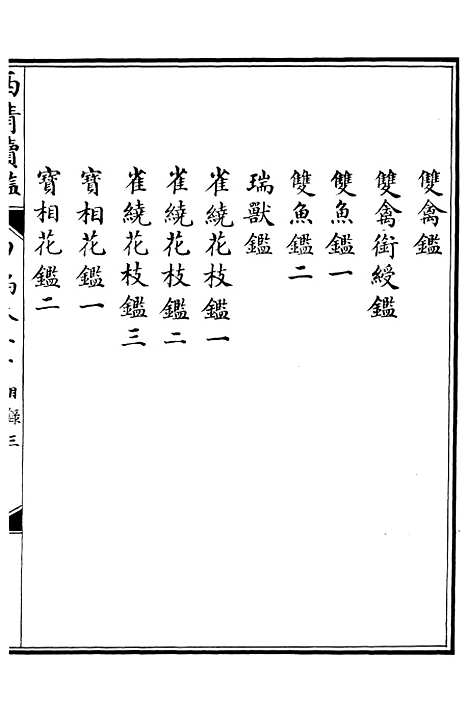 雙禽鑑
雙禽銜綬鑑
雙魚鑑一
雙魚鑑二
瑞獸鑑
雀繞花枝鑑一
雀繞花枝鑑二
雀繞花枝鑑三
寶相花鑑一
寶相花鑑二
西清續鑑
目錄三